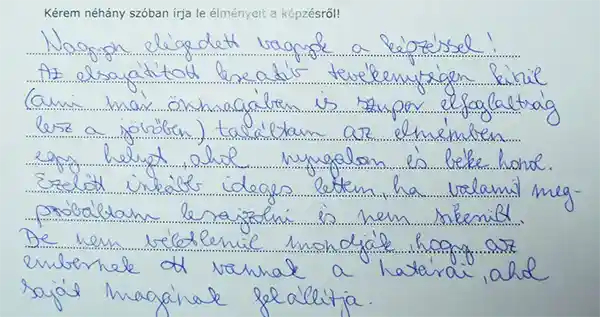 Kérem néhány szóban írja le élményeit a képzésről!
Nagyon elégedett vagyok a képzéssel!
Az elsajátított kreatív tevékenységen kívül
(ami már önmagában is szuper elfoglaltság
lesz a jövőben) találtam az elmémben
egy helyet, ahol nyugalom és béke honol.
Ezelőtt inkább ideges lettem, ha valamit meg-
próbáltam lerajzolni és nem sikerült.
De nem véletlenül mondják, hogy az
embernek ott vannak a határai, ahol
saját magának felállítja.